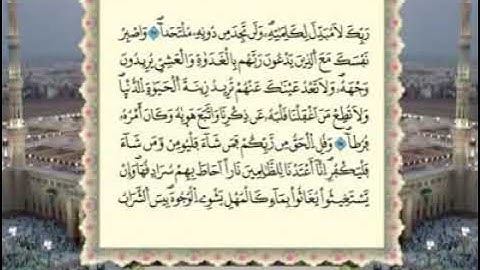 رَبِّكَ لَا مُبَدِّلَ لِكَلِمَٰتِهِۦ وَلَن تَجِدَ مِن دُونِهِۦ مُلْتَحَدًا ۝ وَٱصْبِرْ
نَفْسَكَ مَعَ ٱلَّذِينَ يَدْعُونَ رَبَّهُم بِٱلْغَدَوٰةِ وَٱلْعَشِىِّ يُرِيدُونَ
وَجْهَهُۥ وَلَا تَعْدُ عَيْنَاكَ عَنْهُمْ تُرِيدُ زِينَةَ ٱلْحَيَوٰةِ ٱلدُّنْيَا
وَلَا تُطِعْ مَنْ أَغْفَلْنَا قَلْبَهُۥ عَن ذِكْرِنَا وَٱتَّبَعَ هَوَىٰهُ وَكَانَ أَمْرُهُۥ
فُرُطًا ۝ وَقُلِ ٱلْحَقُّ مِن رَّبِّكُمْ فَمَن شَآءَ فَلْيُؤْمِن وَمَن شَآءَ
فَلْيَكْفُرْ إِنَّآ أَعْتَدْنَا لِلظَّٰلِمِينَ نَارًا أَحَاطَ بِهِمْ سُرَادِقُهَا وَإِن
يَسْتَغِيثُوا۟ يُغَاثُوا۟ بِمَآءٍ كَٱلْمُهْلِ يَشْوِى ٱلْوُجُوهَ بِئْسَ ٱلشَّرَابُ